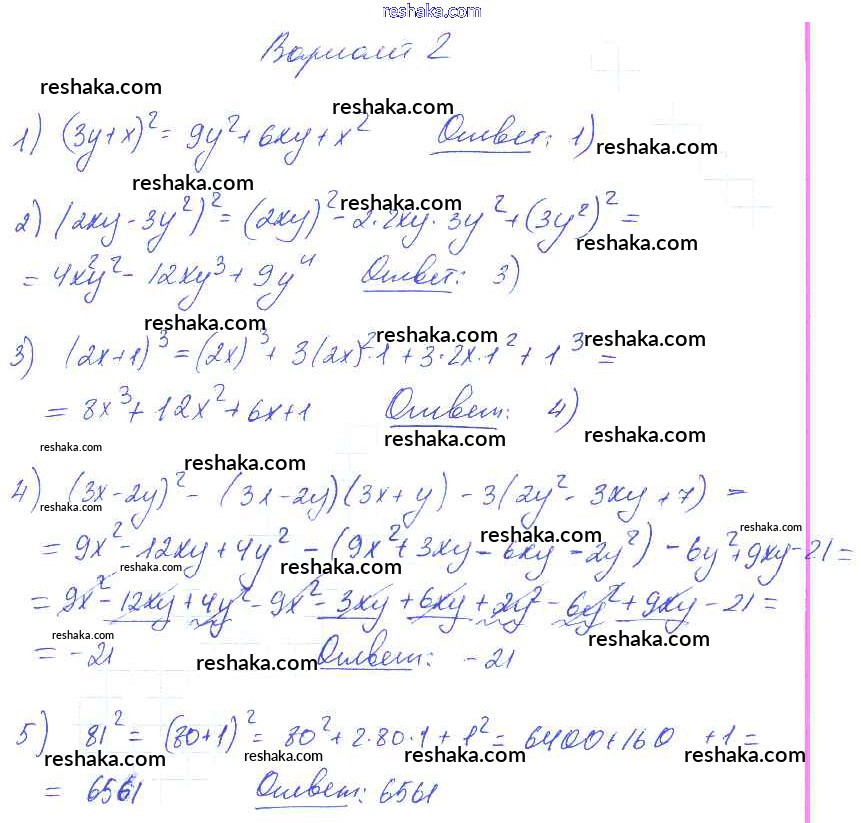 reshaka.com
Вариант 2
reshaka.com
reshaka.com
1) (3y+x)² = 9y² + 6xy + x² Ответ: 1)
reshaka.com
reshaka.com
reshaka.com
2) (2xy - 3y²)² = (2xy)² - 2·2xy·3y² + (3y²)² =
reshaka.com
= 4x²y² - 12xy³ + 9y⁴ Ответ: 3)
reshaka.com
reshaka.com
reshaka.com
3) (2x+1)³ = (2x)³ + 3(2x)²·1 + 3·2x·1² + 1³ =
= 8x³ + 12x² + 6x + 1 Ответ: 4)
reshaka.com
reshaka.com
reshaka.com
reshaka.com
4) (3x-2y)² - (3x-2y)(3x+y) - 3(2y² - 3xy + 7) =
reshaka.com
reshaka.com
reshaka.com
= 9x² - 12xy + 4y² - (9x² + 3xy - 6xy - 2y²) - 6y² + 9xy - 21 =
reshaka.com
reshaka.com
= 9x² - 12xy + 4y² - 9x² - 3xy + 6xy + 2y² - 6y² + 9xy - 21 =
reshaka.com
reshaka.com
= -21 Ответ: -21
reshaka.com
5) 81² = (80+1)² = 80² + 2·80·1 + 1² = 6400 + 160 + 1 =
reshaka.com
reshaka.com
reshaka.com
reshaka.com
= 6561 Ответ: 6561